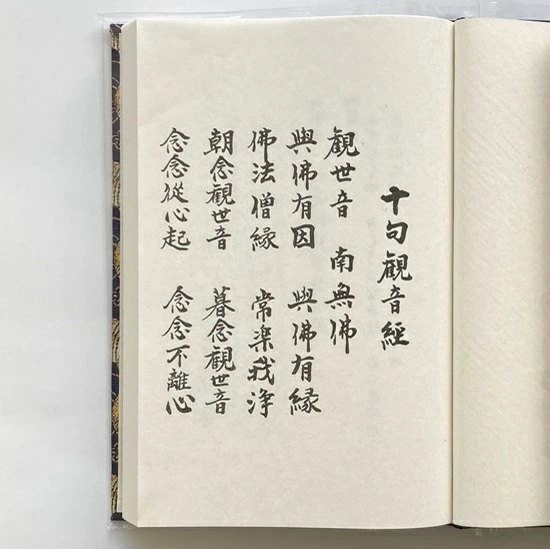 十句觀音經
觀世音 南無佛
與佛有因 與佛有縁
佛法僧縁 常楽我浄
朝念觀世音 暮念觀世音
念念從心起 念念不離心